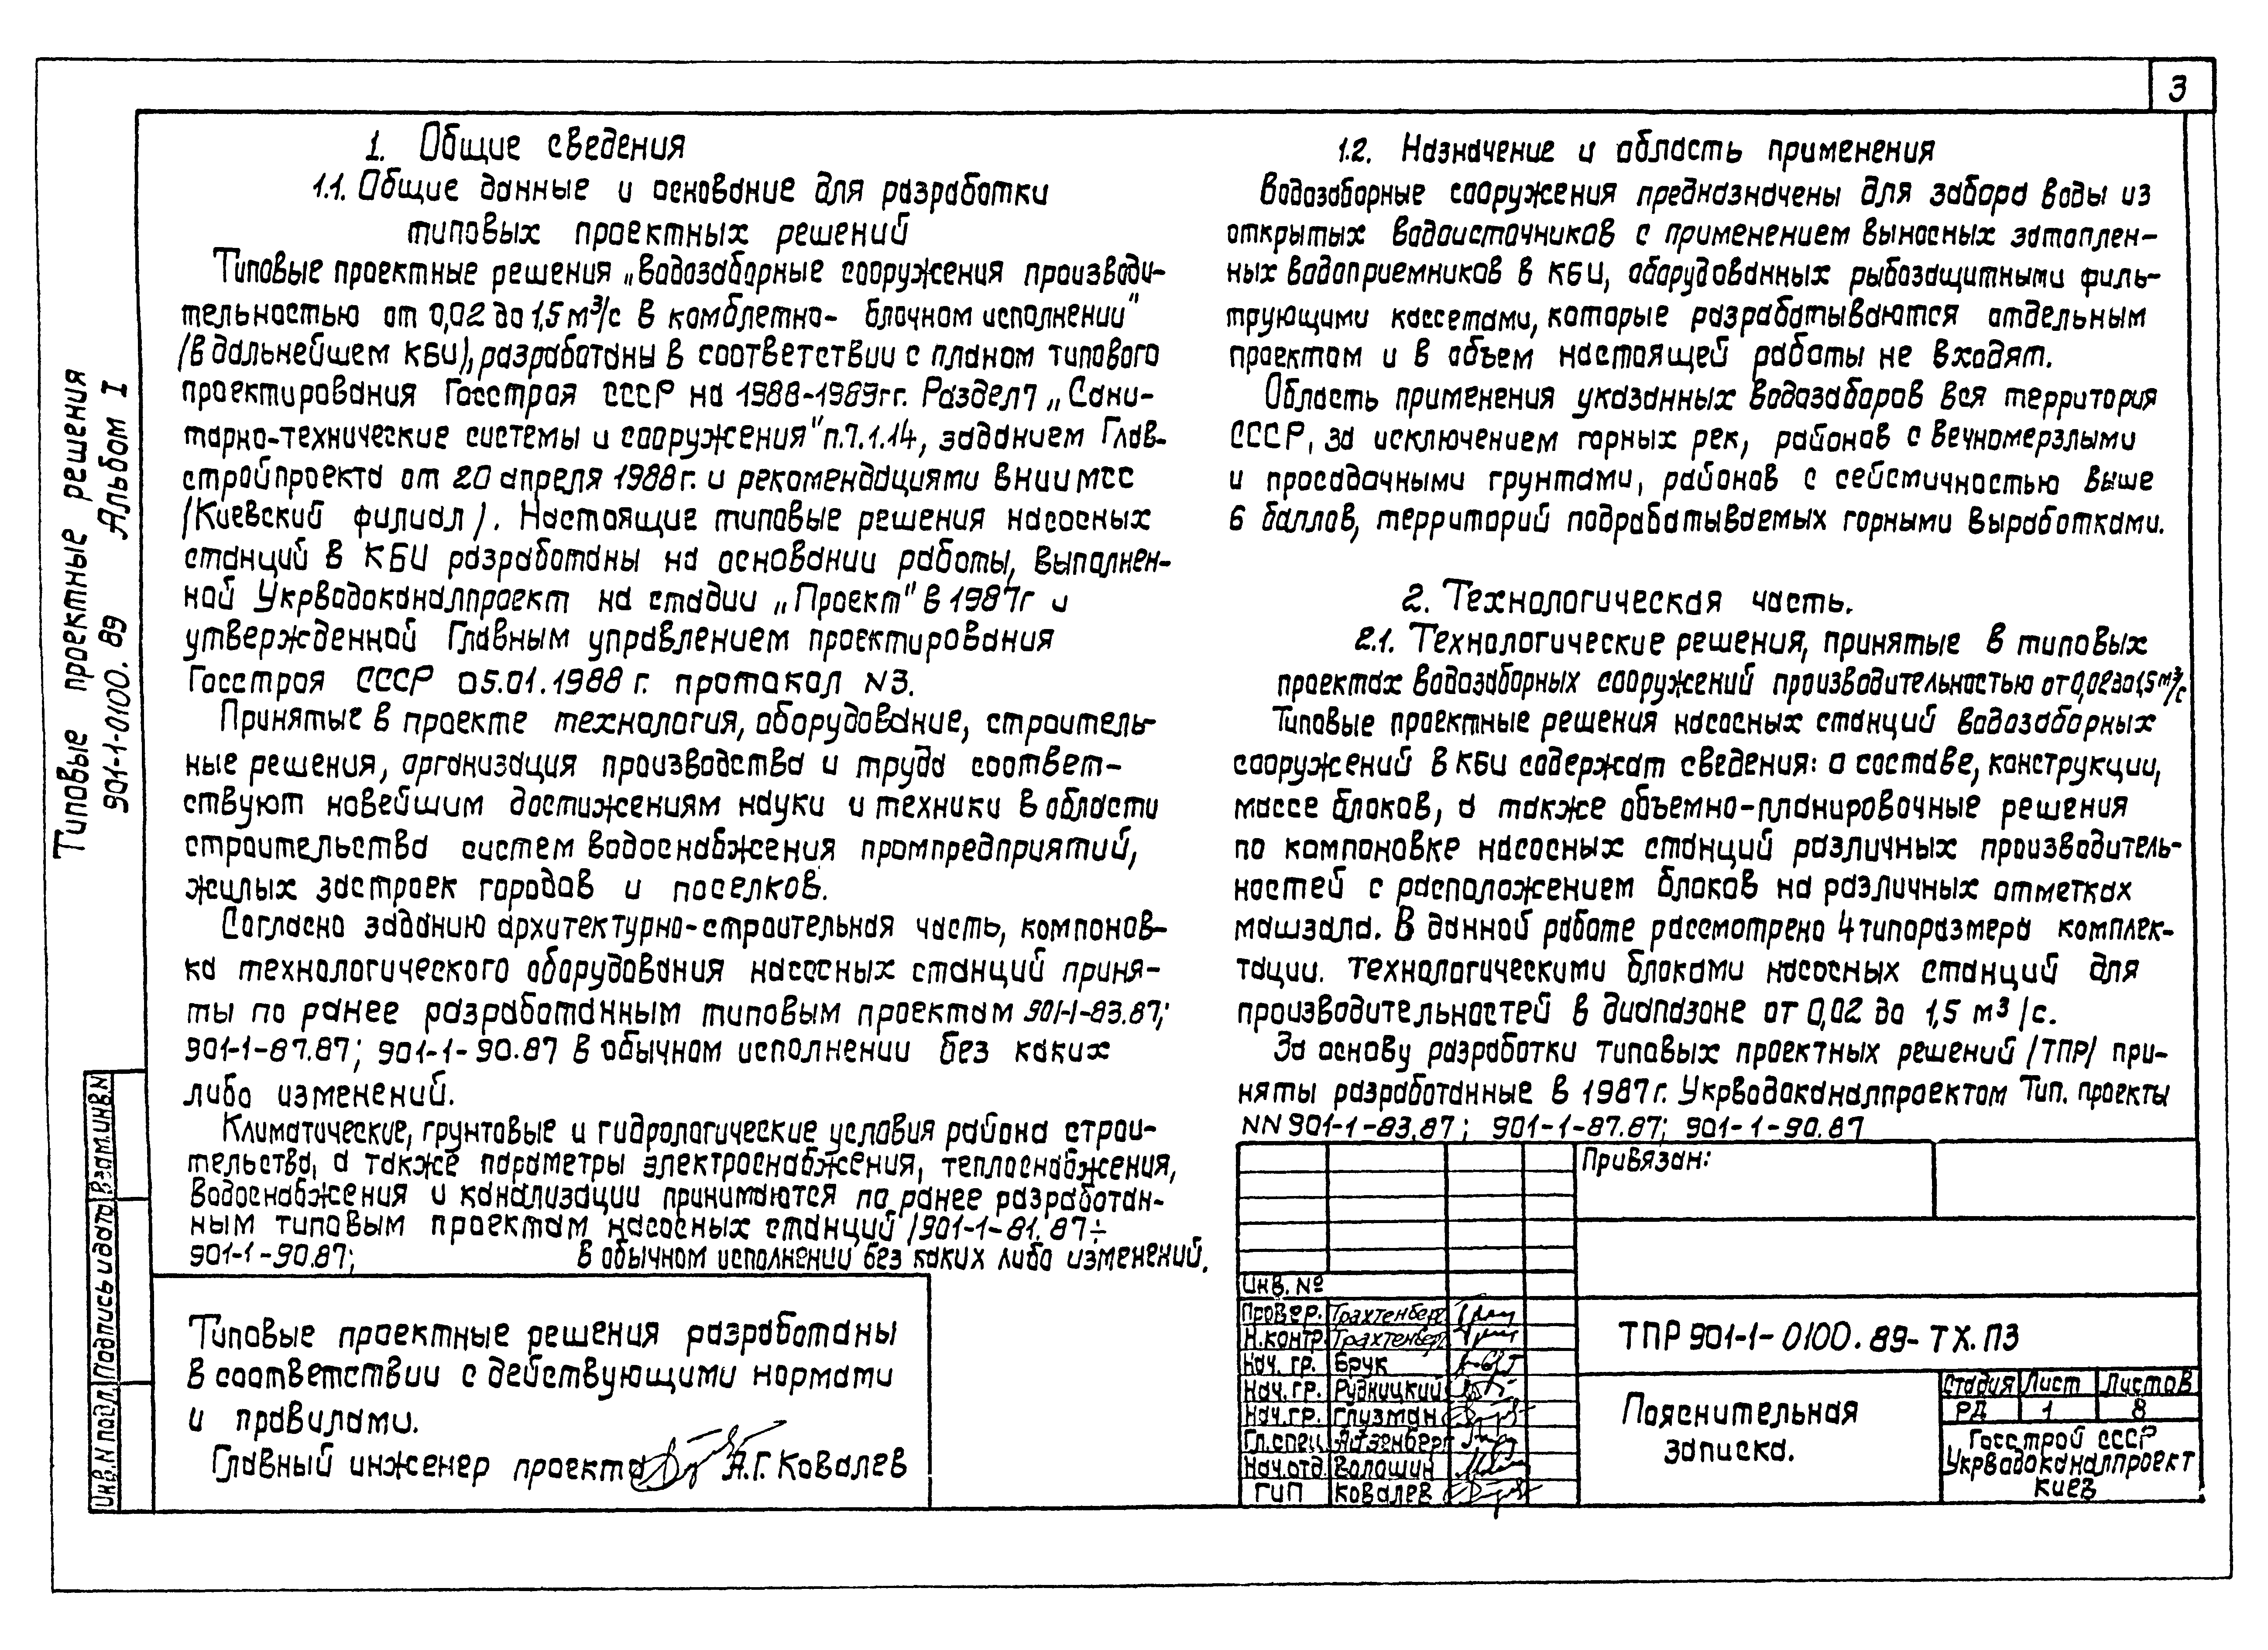 3
Типовые проектные решения
901-1-0100.89 Альбом I
1. Общие сведения
1.1. Общие данные и основание для разработки
типовых проектных решений
Типовые проектные решения „Водозаборные сооружения производи-
тельностью от 0,02 до 1,5 м³/с в комблетно- блочном исполнении"
/в дальнейшем КБИ/, разработаны в соответствии с планом типового
проектирования Госстроя СССР на 1988-1989гг. Раздел 7 „Сани-
тарно-технические системы и сооружения" п.7.1.14, заданием Глав-
стройпроекта от 20 апреля 1988г. и рекомендациями ВНИИМСС
/Киевский филиал/. Настоящие типовые решения насосных
станций в КБИ разработаны на основании работы, выполнен-
ной Укрводоканалпроект на стадии „Проект" в 1987г и
утвержденной Главным управлением проектирования
Госстроя СССР 05.01.1988 г. протокол N3.
Принятые в проекте технология, оборудование, строитель-
ные решения, организация производства и труда соответ-
ствуют новейшим достижениям науки и техники в области
строительства систем водоснабжения промпредприятий,
жилых застроек городов и поселков.
Согласно заданию архитектурно-строительная часть, компонов-
ка технологического оборудования насосных станций приня-
ты по ранее разработанным типовым проектам 901-1-83.87;
901-1-87.87; 901-1-90.87 в обычном исполнении без каких
либо изменений.
Климатические, грунтовые и гидрологические условия района строи-
тельства, а также параметры электроснабжения, теплоснабжения,
водоснабжения и канализации принимаются по ранее разработан-
ным типовым проектам насосных станций /901-1-81.87÷
901-1-90.87; в обычном исполнении без каких либо изменений.
Типовые проектные решения разработаны
в соответствии с действующими нормами
и правилами.
Главный инженер проекта А.Г. Ковалев
1.2. Назначение и область применения
Водозаборные сооружения предназначены для забора воды из
открытых водоисточников с применением выносных затоплен-
ных водоприемников в КБИ, оборудованных рыбозащитными филь-
трующими кассетами, которые разрабатываются отдельным
проектом и в объем настоящей работы не входят.
Область применения указанных водозаборов вся территория
СССР, за исключением горных рек, районов с вечномерзлыми
и просадочными грунтами, районов с сейсмичностью выше
6 баллов, территорий подрабатываемых горными выработками.
2. Технологическая часть.
2.1. Технологические решения, принятые в типовых
проектах водозаборных сооружений производительностью от 0,02 до 1,5 м³/с
Типовые проектные решения насосных станций водозаборных
сооружений в КБИ содержат сведения: о составе, конструкции,
массе блоков, а также объемно-планировочные решения
по компоновке насосных станций различных производитель-
ностей с расположением блоков на различных отметках
машзала. В данной работе рассмотрено 4 типоразмера комплек-
тации. технологическими блоками насосных станций для
производительностей в диапазоне от 0,02 до 1,5 м³/с.
За основу разработки типовых проектных решений /ТПР/ при-
няты разработанные в 1987г. Укрводоканалпроектом Тип. проекты
NN 901-1-83.87; 901-1-87.87; 901-1-90.87
Привязан:
Инв. №
Провер. Трахтенберг
Н.контр. Трахтенберг
Нач. гр. Брук
Нач. гр. Рудницкий
Нач. гр. Глузман
Гл.спец. Айзенберг
Нач.отд. Волошин
ГИП Ковалев
ТПР 901-1-0100.89-ТХ.ПЗ
Пояснительная
записка.
Стадия Лист Листов
РД 1 8
Госстрой СССР
Укрводоканалпроект
Киев
Взам.инв.N
Подпись и дата
Инв.N подл.